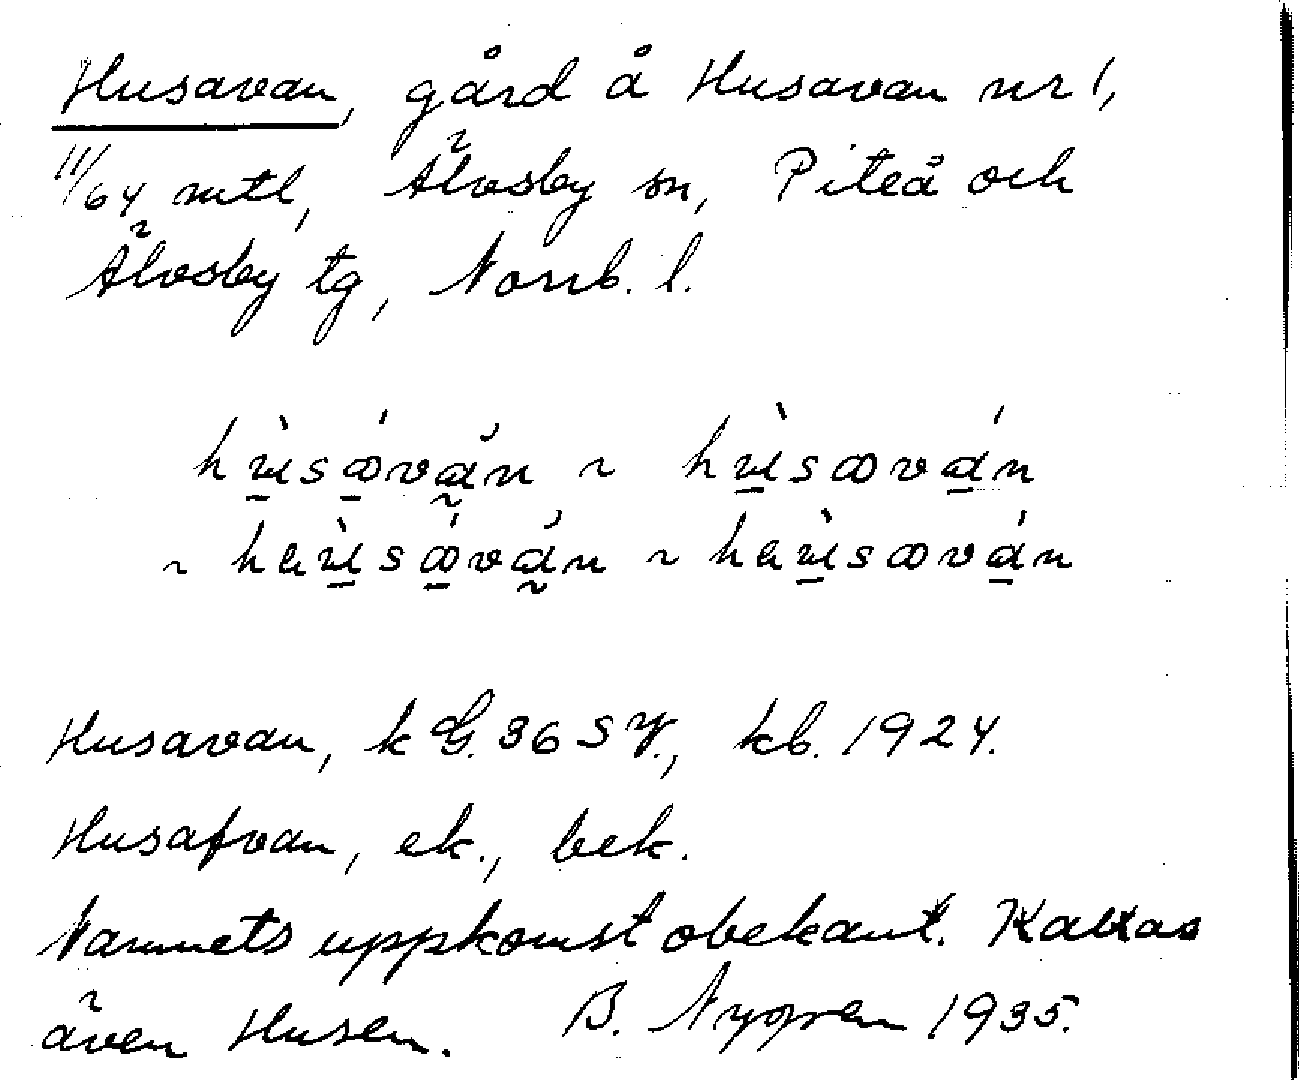 Husavan, gård å Husavan nr 1,
11/64 mtl, Älvsby sn, Piteå och
Älvsby tg, Norrb. l.
Husavan, k G. 36 S V., kb. 1924.
Husafvan, ek., bek.
Namnets uppkomst obekant. Kallas
även Husen. B. Nygren 1935.